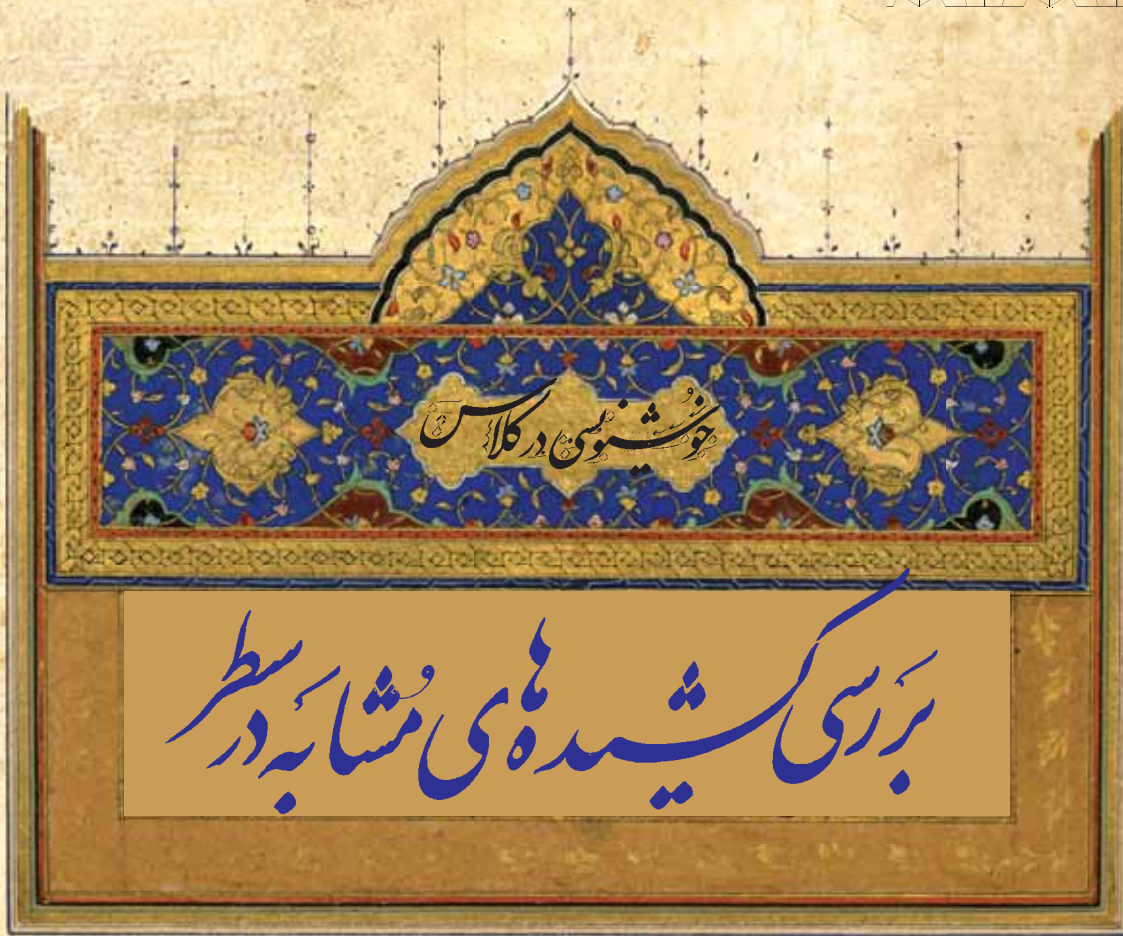 خوشنویسی در کلاس
بَررسی کشیده‌های مُشابَه در سطر